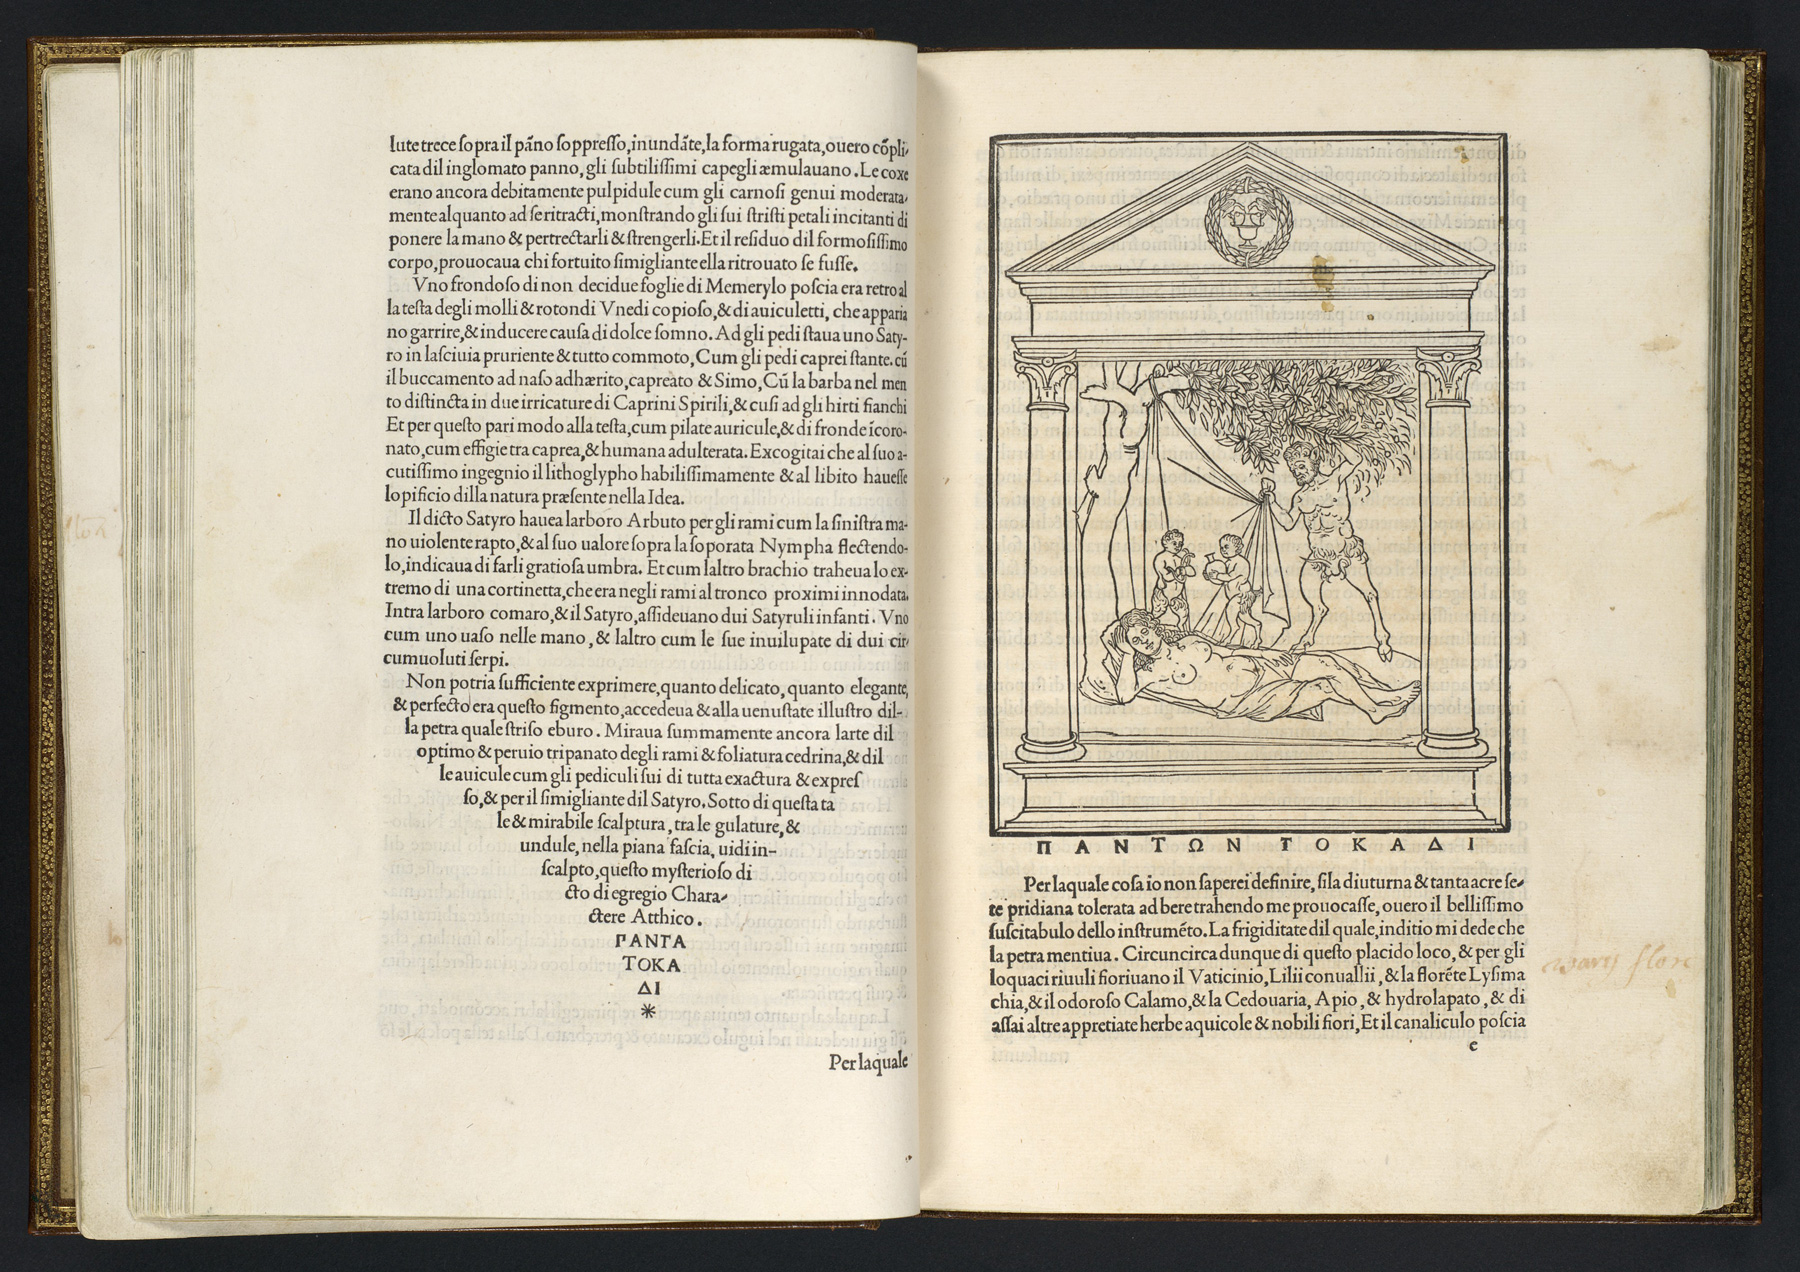 lute trece sopra il pãno soppresso, inundãte, la forma rugata, ouero cõpli-
cata dil inglomato panno, gli subtilissimi capegli æmulauano. Le coxe
erano ancora debitamente pulpidule cum gli carnosi genui moderata-
mente alquanto ad se ritracti, monstrando gli sui stristi petali incitanti di
ponere la mano & pertrectarli & strengerli. Et il residuo dil formosissimo
corpo, prouocaua chi fortuito simigliante ella ritrouato se fusse.
Vno frondoso di non decidue foglie di Memerylo poscia era retro al
la testa degli molli & rotondi Vnedi copioso, & di auiculetti, che apparia
no garrire, & inducere causa di dolce somno. Ad gli pedi staua uno Saty-
ro in lasciuia pruriente & tutto commoto, Cum gli pedi caprei stante. cũ
il buccamento ad naso adhærito, capreato & Simo, Cũ la barba nel men
to distincta in due irricature di Caprini Spirili, & cusi ad gli hirti fianchi
Et per questo pari modo alla testa, cum pilate auricule, & di fronde ĩcoro-
nato, cum effigie tra caprea, & humana adulterata. Excogitai che al suo a-
cutissimo ingegnio il lithoglypho habilissimamente & al libito hauesse
lopificio dilla natura præsente nella Idea.
Il dicto Satyro hauea larboro Arbuto per gli rami cum la sinistra ma-
no uiolente rapto, & al suo ualore sopra la soporata Nympha flectendo-
lo, indicaua di farli gratiosa umbra. Et cum laltro brachio traheua lo ex-
tremo di una cortinetta, che era negli rami al tronco proximi innodata.
Intra larboro comaro, & il Satyro, assideuano dui Satyruli infanti. Vno
cum uno uaso nelle mano, & laltro cum le sue inuilupate di dui cir-
cumuoluti serpi.
Non potria sufficiente exprimere, quanto delicato, quanto elegante,
& perfecto era questo figmento, accedeua & alla uenustate illustro dil-
la petra quale striso eburo. Miraua summamente ancora larte dil
optimo & peruio tripanato degli rami & foliatura cedrina, & dil
le auicule cum gli pediculi sui di tutta exactura & expres
so, & per il simigliante dil Satyro. Sotto di questa ta
le & mirabile scalptura, tra le gulature, &
undule, nella piana fascia, uidi in-
scalpto, questo mysterioso di
cto di egregio Chara-
ctere Atthico.
ΠΑΝΤΑ
ΤΟΚΑ
ΔΙ
*
Per laquale
ΠΑΝΤΩΝ ΤΟΚΑΔΙ
Per laquale cosa io non saperei definire, si la diuturna & tanta acre se-
te pridiana tolerata ad bere trahendo me prouocasse, ouero il bellissimo
suscitabulo dello instrumẽto. La frigiditate dil quale, inditio mi dede che
la petra mentiua. Circuncirca dunque di questo placido loco, & per gli
loquaci riuuli fioriuano il Vaticinio, Lilii conuallii, & la florẽte Lysima
chia, & il odoroso Calamo, & la Cedouaria, Apio, & hydrolapato, & di
assai altre appretiate herbe aquicole & nobili fiori, Et il canaliculo poscia
e